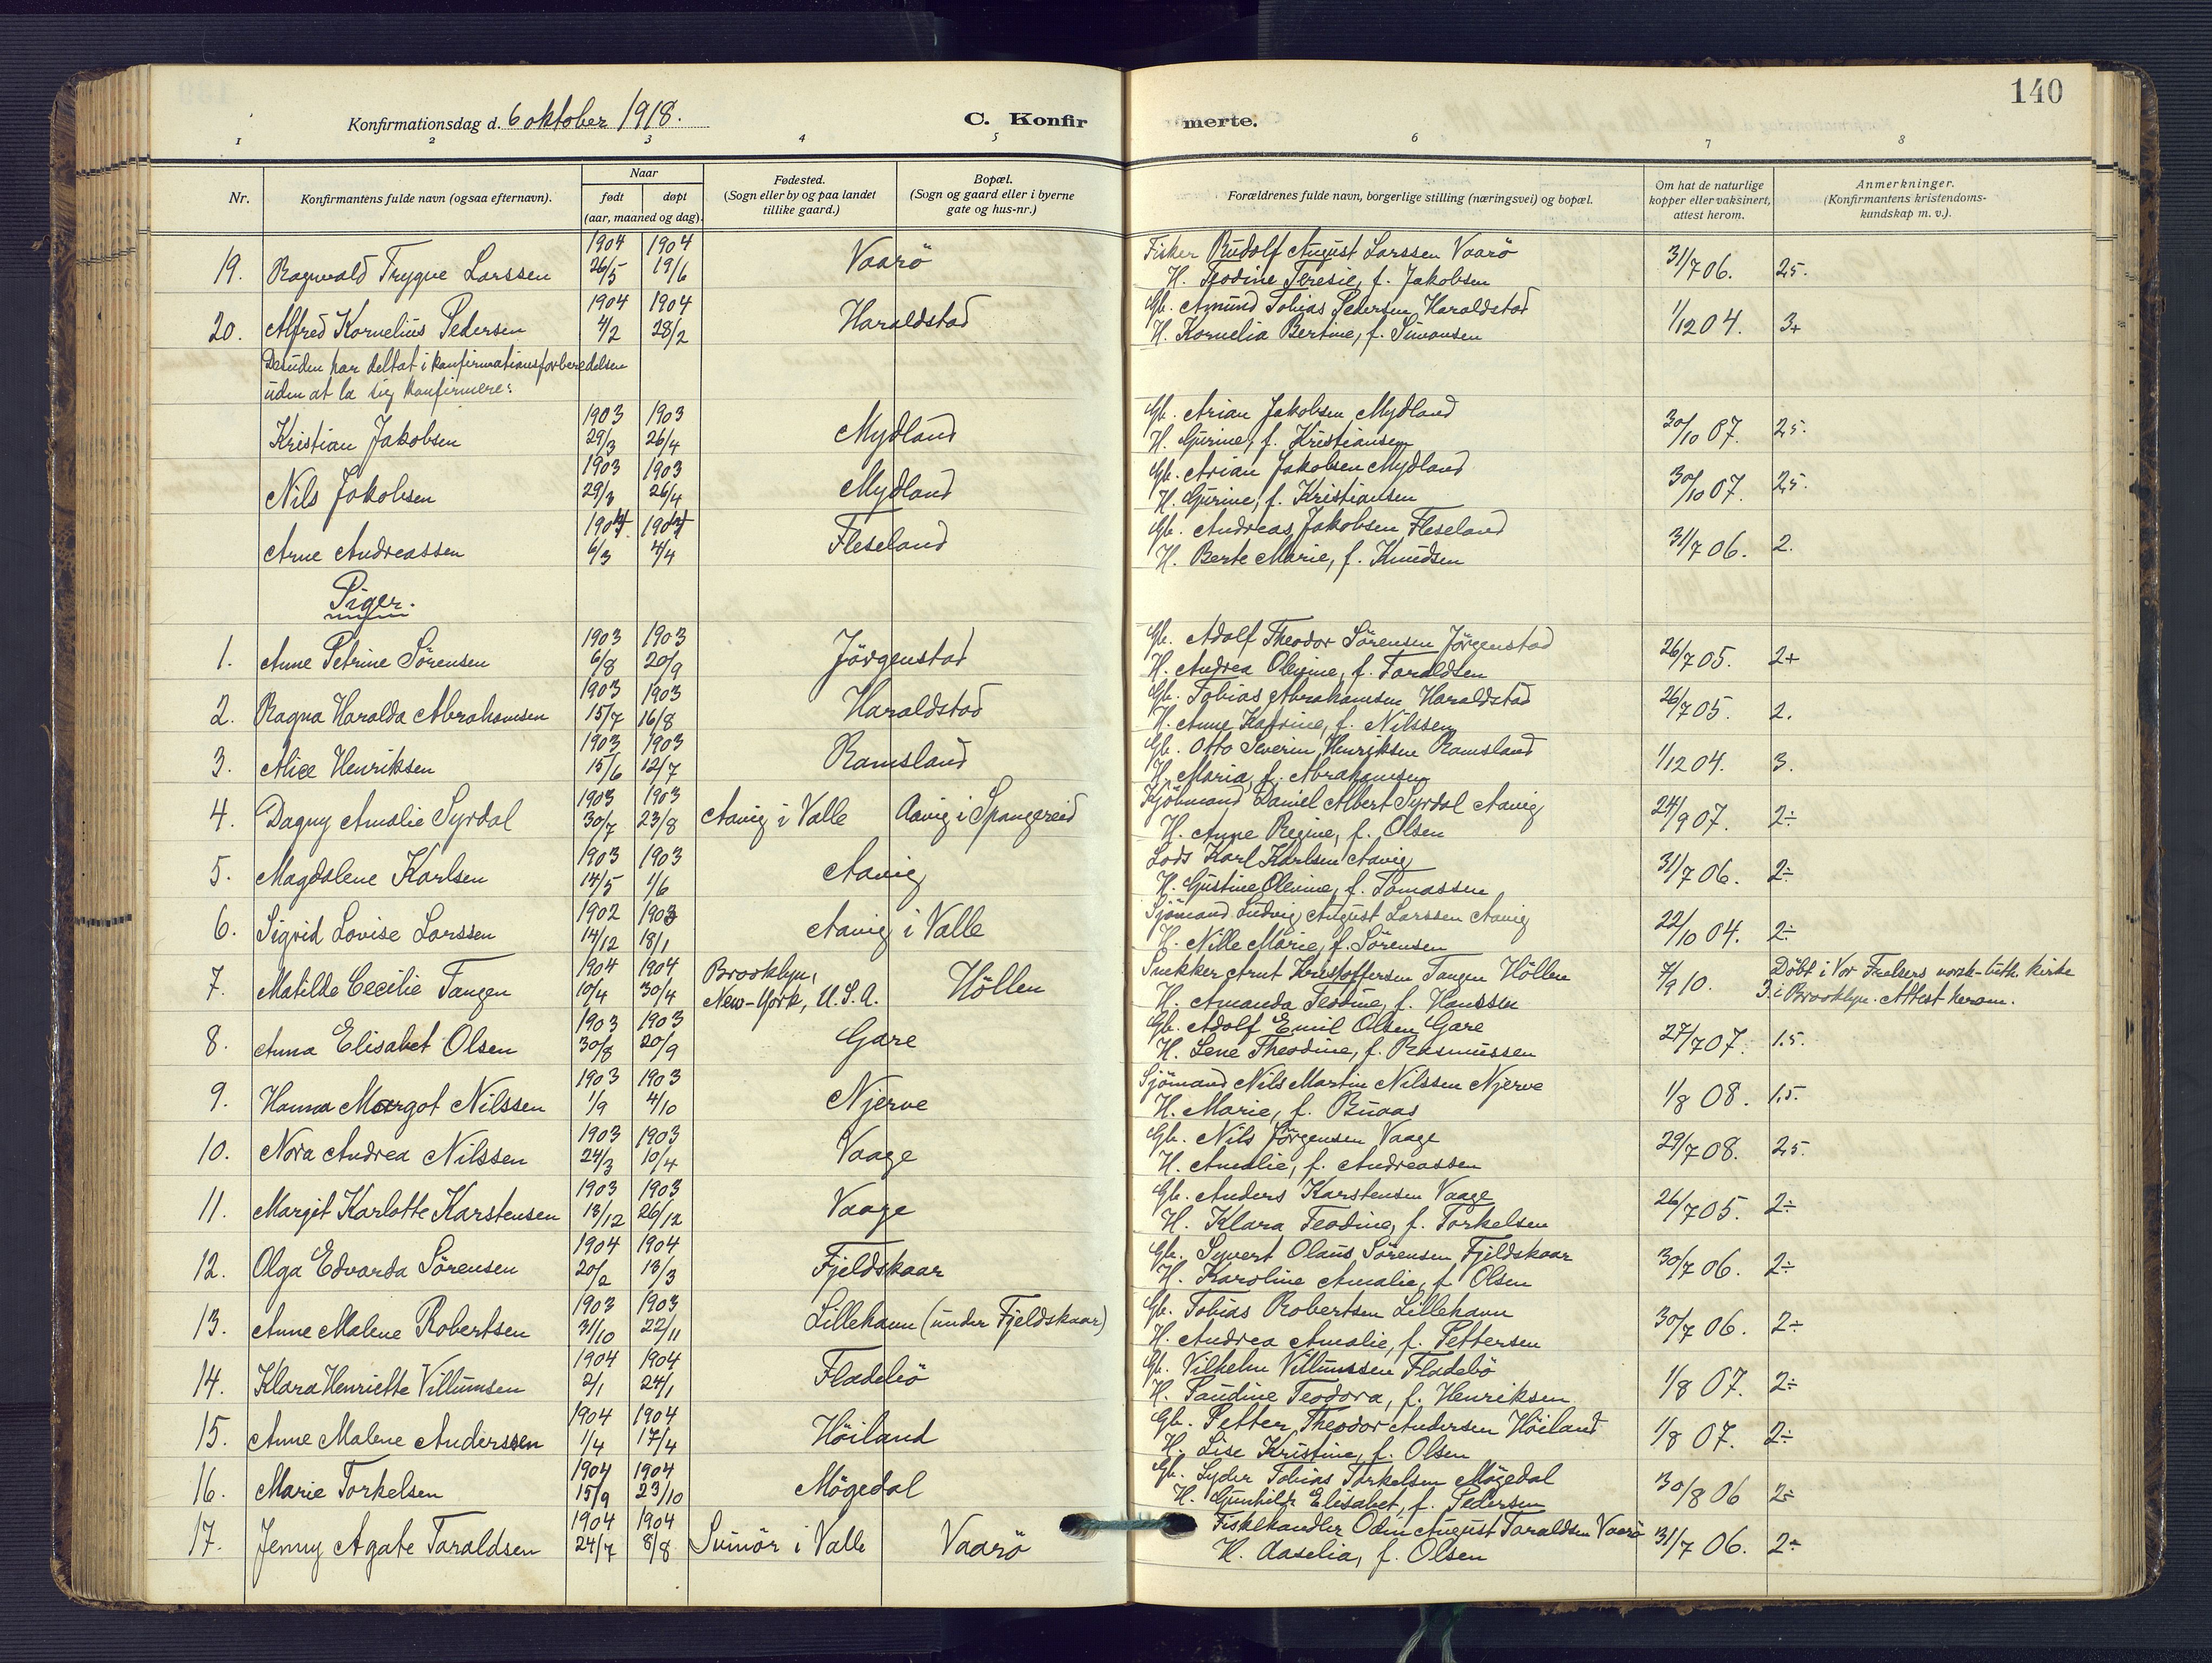 140
Konfirmationsdag d. 6 oktober 1918.
C. Konfirmerte.
1 2 3 4 5 6 7 8
Nr.
Konfirmantens fulde navn (ogsaa efternavn).
Naar
født døpt
(aar, maaned og dag).
Fødested.
(Sogn eller by og paa landet
tillike gaard.)
Bopæl.
(Sogn og gaard eller i byerne
gate og hus-nr.)
Forældrenes fulde navn, borgerlige stilling (næringsvei) og bopæl.
Om hat de naturlige
kopper eller vaksinert,
attest herom.
Anmerkninger.
(Konfirmantens kristendoms-
kundskap m. v.).
1904 1904 Fisker Rudolf August Larssen Vaarö
19. Ragnvald Trygve Larssen 26/5 19/6 Vaarö H. Teodine Teresie, f. Jakobsen 31/7 06. 2,5.
1904 1904 Gb. Amund Tobias Pedersen Haraldstad
20. Alfred Kornelius Pedersen 4/2 28/2 Haraldstad H. Kornelia Bertine, f. Simonsen 1/12 04. 3+
Desuden har deltat i konfirmationsforberedelsen
uden at la sig konfirmere:
1903 1903 Gb. Arian Jakobsen Mydland
Kristian Jakobsen 29/3 26/4 Mydland H. Gurine, f. Kristiansen 30/10 07. 2,5.
1903 1903 Gb. Arian Jakobsen Mydland
Nils Jakobsen 29/3 26/4 Mydland H. Gurine, f. Kristiansen 30/10 07. 2,5.
1904 1904 Gb. Andreas Jakobsen Fleseland
Arne Andreassen 6/3 4/4 Fleseland H. Berte Marie, f. Knudsen 31/7 06. 2.
Piger.
1903 1903 Gb. Adolf Theodor Sörensen Jörgenstad
1. Anne Petrine Sörensen 6/8 20/9 Jörgenstad H. Andrea Olevine, f. Taraldsen 26/7 05. 2+
1903 1903 Gb. Tobias Abrahamsen Haraldstad
2. Ragna Haralda Abrahamsen 15/7 16/8 Haraldstad H. Anne Katrine, f. Nilssen 26/7 05. 2.
1903 1903 Gb. Otto Severin Henriksen Ramsland
3. Alice Henriksen 15/6 12/7 Ramsland H. Maria, f. Abrahamsen 1/12 04. 3.
1903 1903 Sjömand Daniel Albert Syrdal Aavig
4. Dagny Amalie Syrdal 30/7 23/8 Aavig i Valle Aavig i Spangereid H. Anne Regine, f. Olsen 24/9 07. 2÷
1903 1903 Lods Karl Karlsen Aavig
5. Magdalene Karlsen 14/5 1/6 Aavig H. Gustine Olevine, f. Tomassen 31/7 06. 2÷
1902 1903 Sjömand Ludvig August Larssen Aavig
6. Sigrid Lovise Larssen 14/12 18/1 Aavig i Valle H. Nille Marie, f. Sörensen 22/10 04. 2÷
1904 1904 Brooklyn, Snekker Arnt Kristoffersen Tangen Höllen Döbt i Vor Frelsers norsk-luth. kirke
7. Matilde Cecilie Tangen 10/4 30/4 New-York, U.S.A. Höllen H. Amanda Teodine, f. Hanssen 7/9 10. 3. i Brooklyn. Attest herom.
1903 1903 Gb. Adolf Emil Olsen Gare
8. Anna Elisabet Olsen 30/8 20/9 Gare H. Lene Theodine, f. Rasmussen 27/7 07. 1,5.
1903 1903 Sjömand Nils Martin Nilssen Njerve
9. Hanna Margot Nilssen 1/9 4/10 Njerve H. Marie, f. Buaas 1/8 08. 1,5.
1903 1903 Gb. Nils Jörgensen Vaage
10. Nora Andrea Nilssen 24/3 10/4 Vaage H. Amalie, f. Andreassen 29/7 08. 2,5.
1903 1903 Gb. Anders Karstensen Vaage
11. Margit Karlotte Karstensen 13/12 26/12 Vaage H. Klara Teodine, f. Torkelsen 26/7 05. 2÷
1904 1904 Gb. Syvert Olaus Sörensen Fjeldskaar
12. Olga Edvarda Sörensen 20/2 13/3 Fjeldskaar H. Karoline Amalie, f. Olsen 30/7 06. 2÷
1903 1903 Gb. Tobias Robertsen Lillehavn
13. Anne Malene Robertsen 31/10 22/11 Lillehavn (under Fjeldskaar) H. Andrea Amalie, f. Pettersen 30/7 06. 2÷
1904 1904 Gb. Vilhelm Villumssen Fladebö
14. Klara Henriette Villumsen 2/1 24/1 Fladebö H. Paudine Teodora, f. Henriksen 1/8 07. 2÷
1904 1904 Gb. Petter Theodor Andersen Höiland
15. Anne Malene Anderssen 1/4 17/4 Höiland H. Lise Kristine, f. Olsen 1/8 07. 2÷
1904 1904 Gb. Syder Tobias Torkelsen Mögedal
16. Marie Torkelsen 15/9 23/10 Mögedal H. Gunhilde Elisabet, f. Pedersen 30/8 06 2÷
1904 1904 Fiskehandler Odin August Taraldsen Vaarö
17. Jenny Agate Taraldsen 24/7 8/8 Svinör i Valle Vaarö H. Aaselia, f. Olsen 31/7 06. 2÷